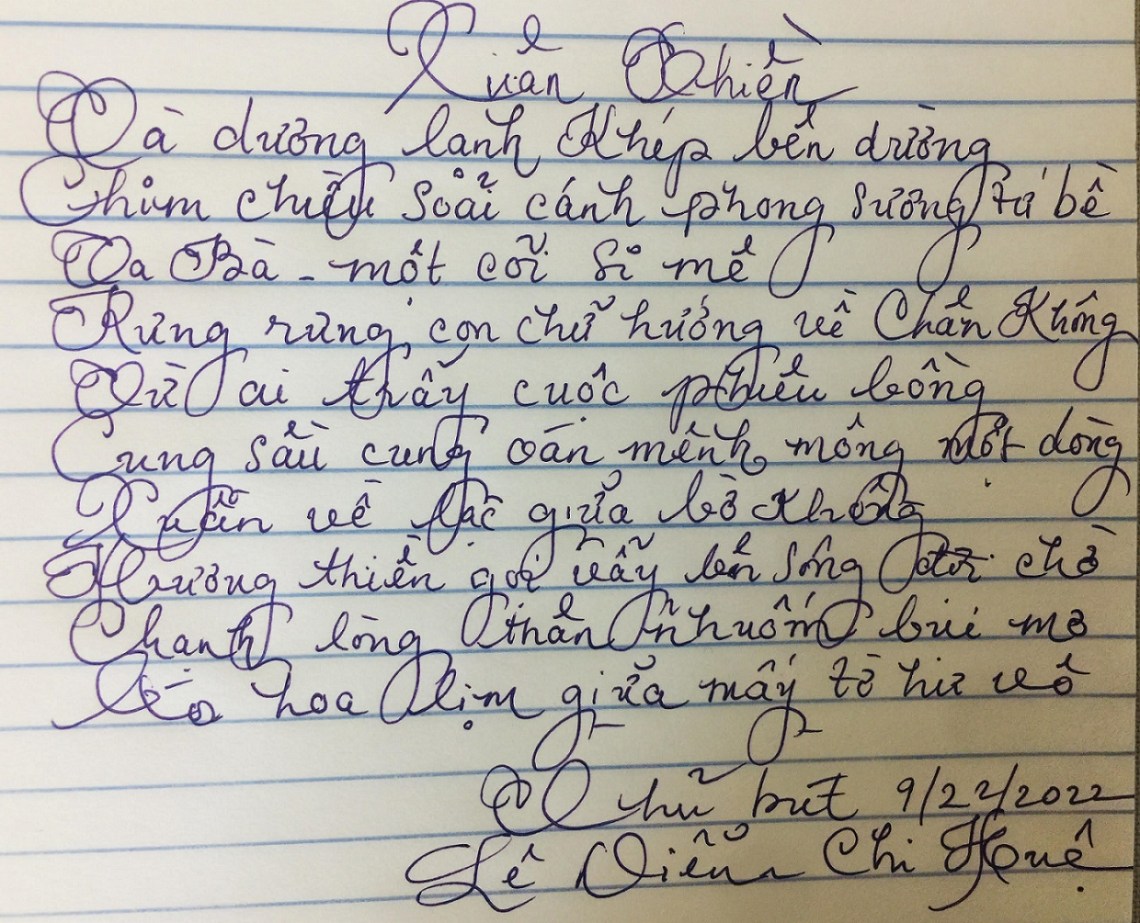 Xuân Thiền
Tà dương lạnh khép bên đường
Chim chiều soải cánh phong sương tứ bề
Ta Bà - một cõi si mê
Rưng rưng con chữ hướng về Chân Không
Từ ai thấy cuộc phiêu bồng
Cung sầu cung oán mênh mông một dòng
Xuân về lạc giữa bờ không
Hương thiền gợi vẫy bên sông đợi chờ
Chạnh lòng thân nhuốm bụi mơ
Đóa hoa lịm giữa mấy tờ hư vô
Thủ bút 9/22/2022
Lê Diễn Chi Huệ